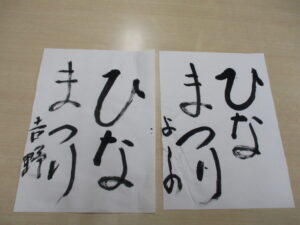 ひな
まつり
よしの
ひな
まつり
吉野